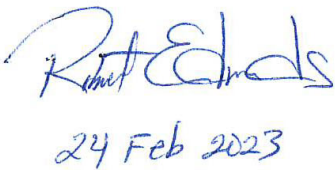 Robert Edwards
24 Feb 2023